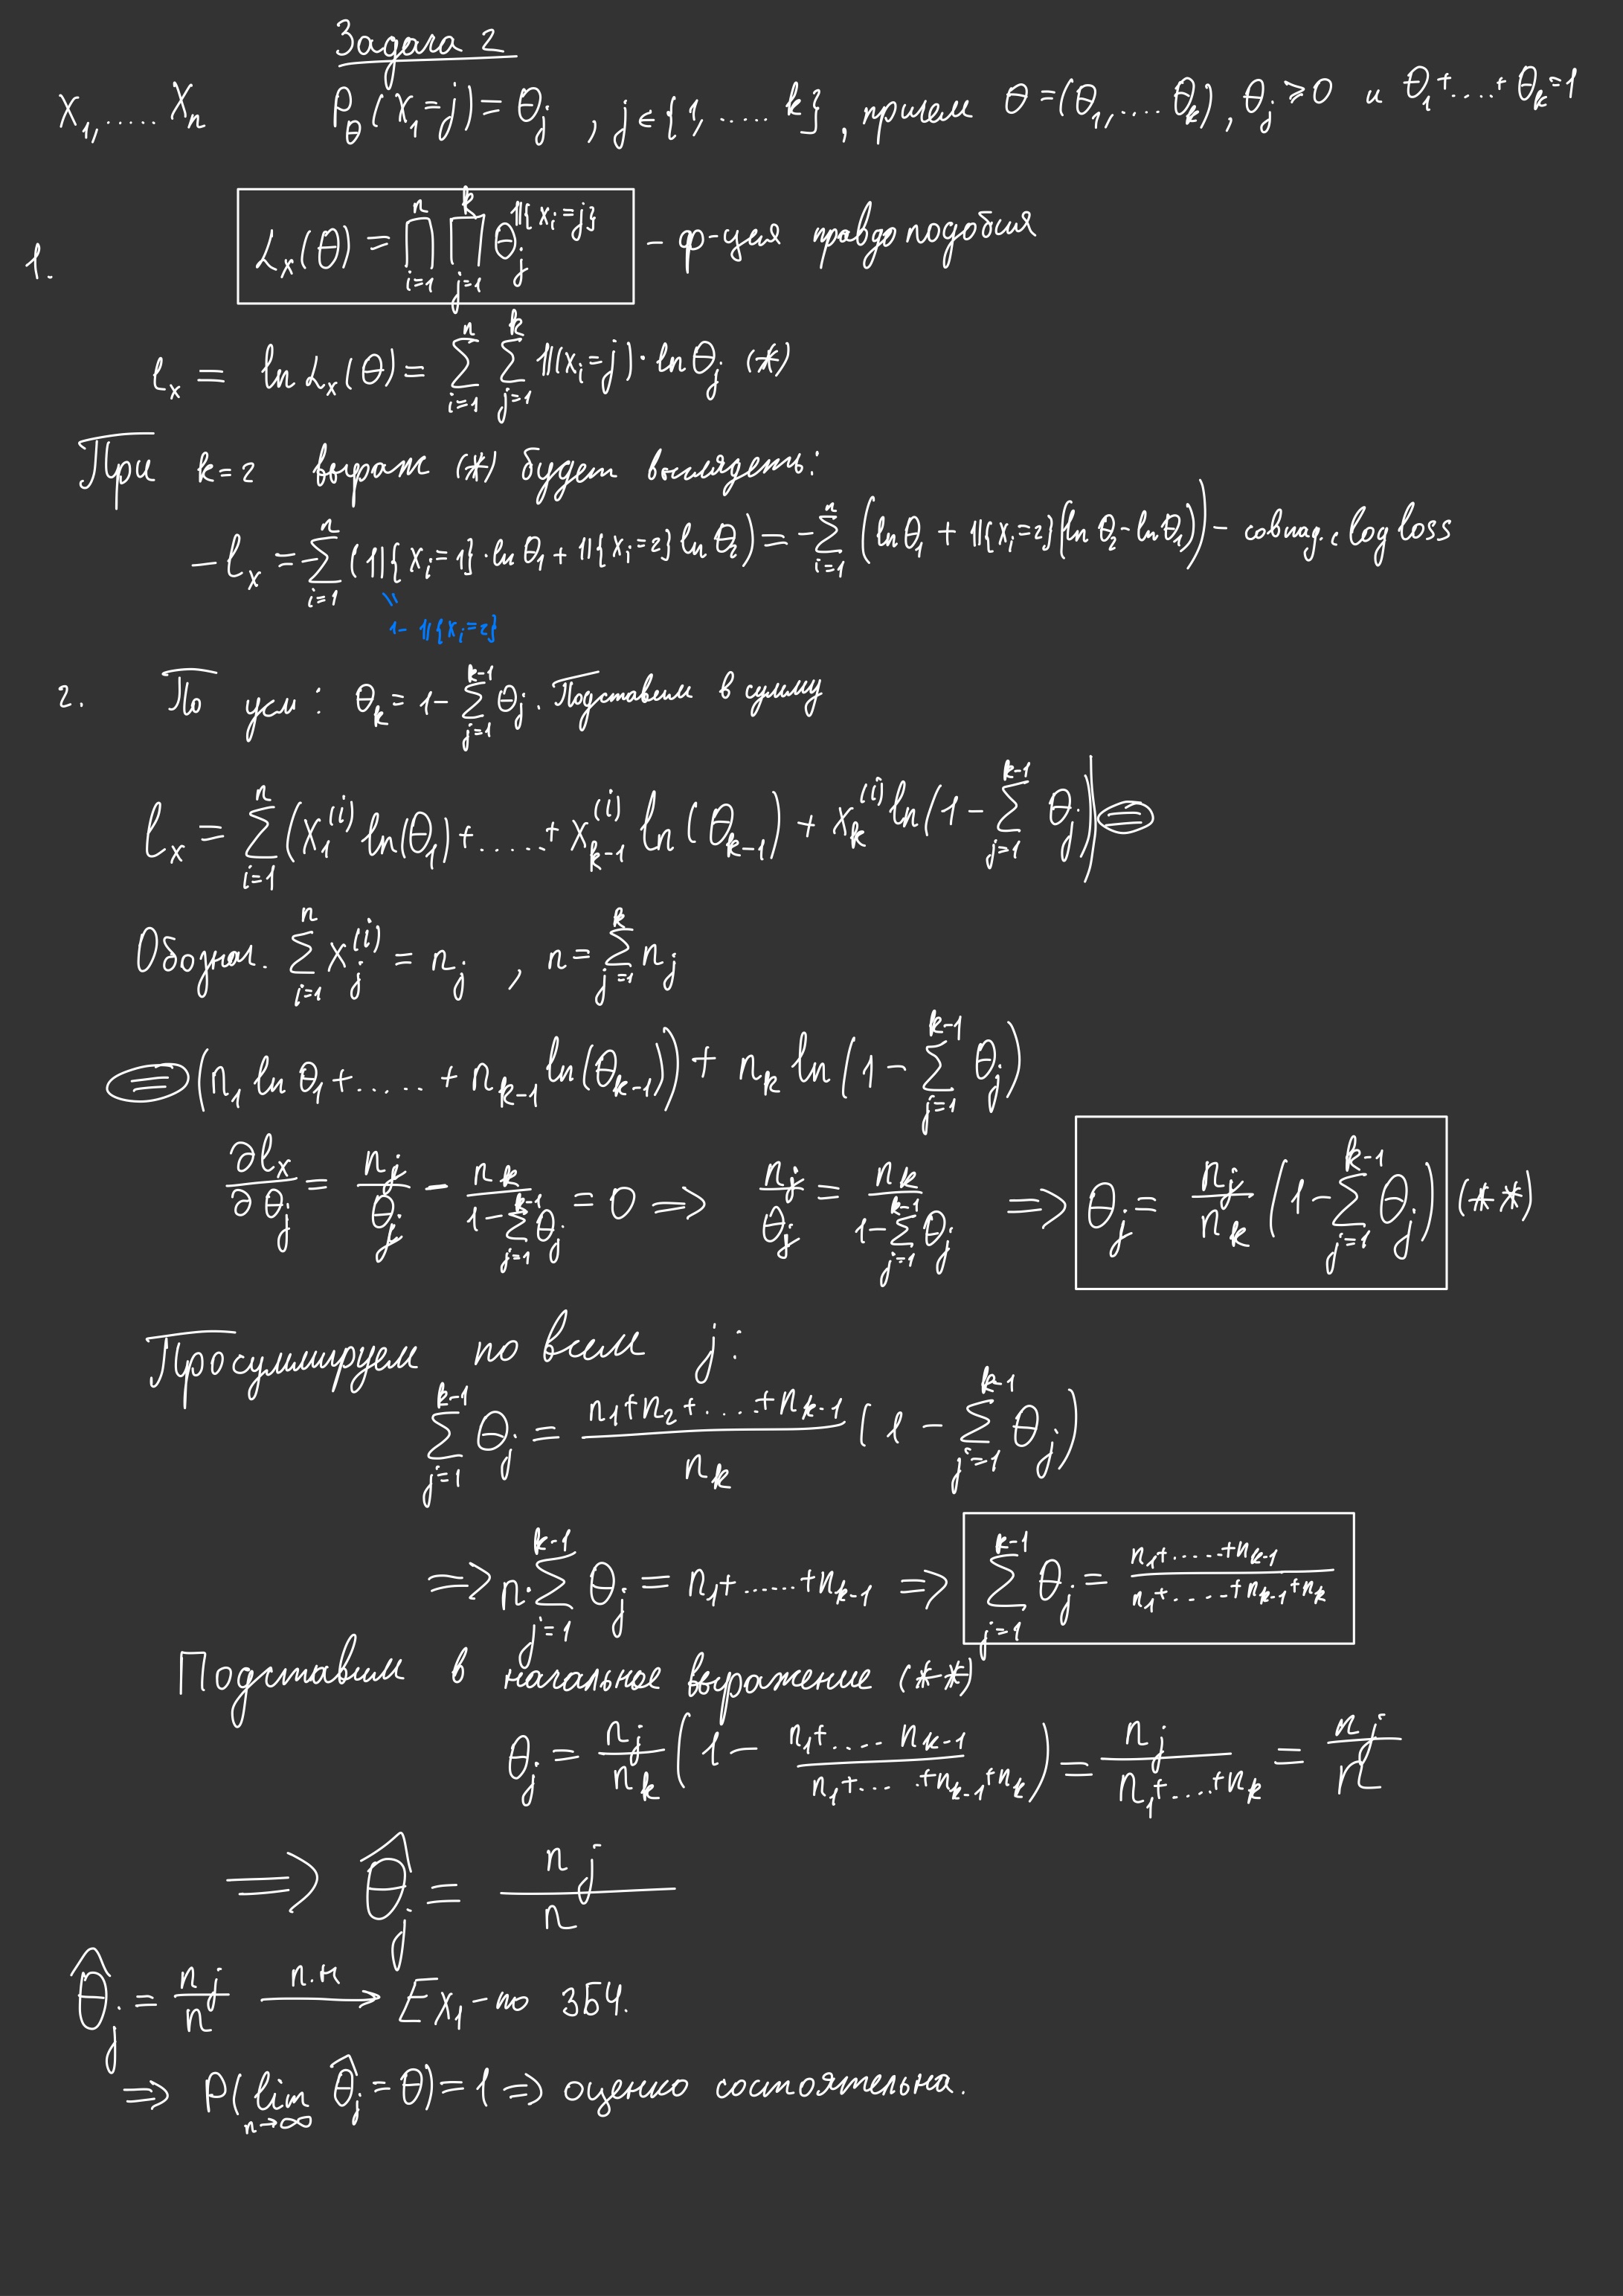 Задача 2
X₁, ..... Xₙ P_θ (X₁=j) = θ_j , j ∈ {1, ..... k} , причем θ = (θ₁, .... θ_k), θ_j ≥ 0 и θ₁+....+θ_k=1
1. ℒ_x(θ) = ∏_{i=1}^{n} ∏_{j=1}^{k} θ_j^{𝟙{x_i=j}} – ф-ция правдоподобия
l_x = ln ℒ_x(θ) = ∑_{i=1}^{n} ∑_{j=1}^{k} 𝟙(x_i=j) · ln θ_j (*)
При k=2 выраж (*) будет выглядеть:
–l_x = –∑_{i=1}^{n} (𝟙{x_i=1} · ln θ₁ + 𝟙{x_i=2} ln θ₂) = –∑_{i=1}^{n} (ln θ₁ + 𝟙{x_i=2}(ln θ₂ – ln θ₁)) – совпад. с log loss
1 – 𝟙{x_i=2}
2. По усл: θ_k = 1 – ∑_{j=1}^{k-1} θ_j. Подставим в сумму
l_x = ∑_{i=1}^{n} (x₁^{(i)} ln(θ₁) + ..... + x_{k-1}^{(i)} ln(θ_{k-1}) + x_k^{(i)} ln(1 – ∑_{j=1}^{k-1} θ_j)) =
Обознач. ∑_{i=1}^{n} x_j^{(i)} = n_j , n = ∑_{j=1}^{k} n_j
= (n₁ ln θ₁ + ..... + n_{k-1} ln(θ_{k-1})) + n_k ln(1 – ∑_{j=1}^{k-1} θ_j)
∂l_x/∂θ_j = n_j/θ_j – n_k/(1 – ∑_{j=1}^{k-1} θ_j) = 0 ⇒ n_j/θ_j = n_k/(1 – ∑_{j=1}^{k-1} θ_j) ⇒ θ_j = n_j/n_k (1 – ∑_{j=1}^{k-1} θ_j) (**)
Просуммируем по всем j:
∑_{j=1}^{k-1} θ_j = (n₁+n₂+....+n_{k-1})/n_k (1 – ∑_{j=1}^{k-1} θ_j)
⇒ n · ∑_{j=1}^{k-1} θ_j = n₁+.....+n_{k-1} ⇒ ∑_{j=1}^{k-1} θ_j = (n₁+.....+n_{k-1})/(n₁+.....+n_{k-1}+n_k)
Подставим в начальное выражение (**)
θ_j = n_j/n_k (1 – (n₁+.... n_{k-1})/(n₁+.... +n_{k-1}+n_k)) = n_j/(n₁+....+n_k) = n_j/n
⇒ θ̂_j = n_j/n
θ̂_j = n_j/n →^{п.н} Ex₁ – по ЗБЧ.
⇒ P(lim_{n→∞} θ̂_j = θ) = 1 ⇒ оценка состоятельна.